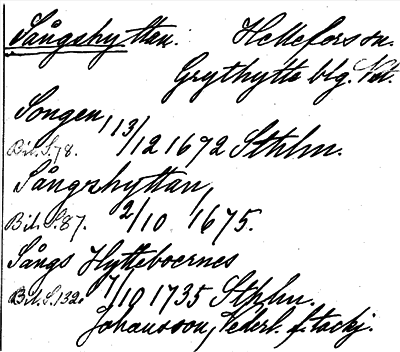 Sångshyttan. Hellefors sn.
Grythytte blg. Vstm.
Songen, 13/12 1692 Sthlm.
Bil. S. 78.
Sångzhyttan,
Bil. S. 87. 2/10 1675.
Sångs Hytteboernes
Bil. S. 132. 7/10 1735 Sthlm.
Johansson, Nederl. f. tackj.